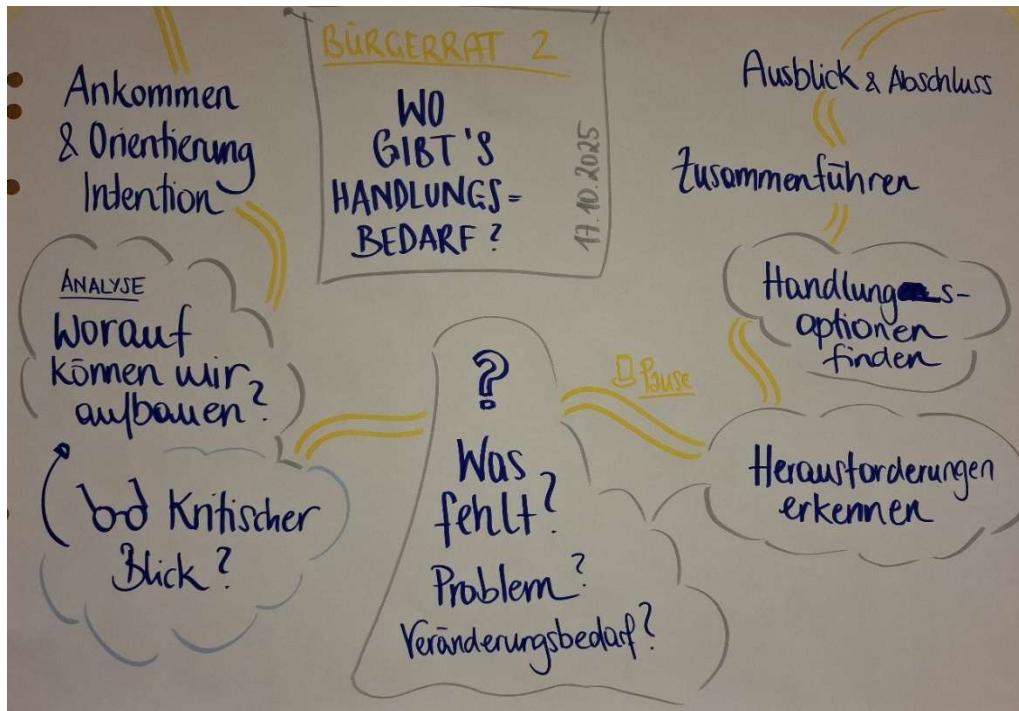 BÜRGERRAT 2
WO
GIBT'S
HANDLUNGS=
BEDARF?
17.10.2025
Ankommen
& Orientierung
Intention
ANALYSE
Worauf
können wir
aufbauen?
Kritischer
Blick?
?
Was
fehlt?
Problem?
Veränderungsbedarf?
Pause
Herausforderungen
erkennen
Handlungs-
optionen
finden
Zusammenführen
Ausblick & Abschluss